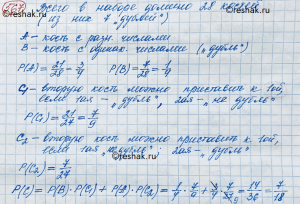 Всего в наборе домино 28 костей
из них 7 "дублей"
A - кость с разн. числами
B - кость с одинак. числами ("дубль")
P(A) = 21/28 = 3/4 P(B) = 7/28 = 1/4
C₁ - вторую кость можно приставить к 1ой,
если 1ая - "дубль", 2ая - "не дубль"
P(C₁) = 21/27 = 7/9
C₂ - вторую кость можно приставить к 1ой,
если 1ая "не дубль"; 2ая - "дубль"
P(C₂) = 7/27
P(C) = P(B)·P(C₁) + P(A)·P(C₂) = 1/4 · 7/9 + 3/4 · 7/27 = 14/36 = 7/18